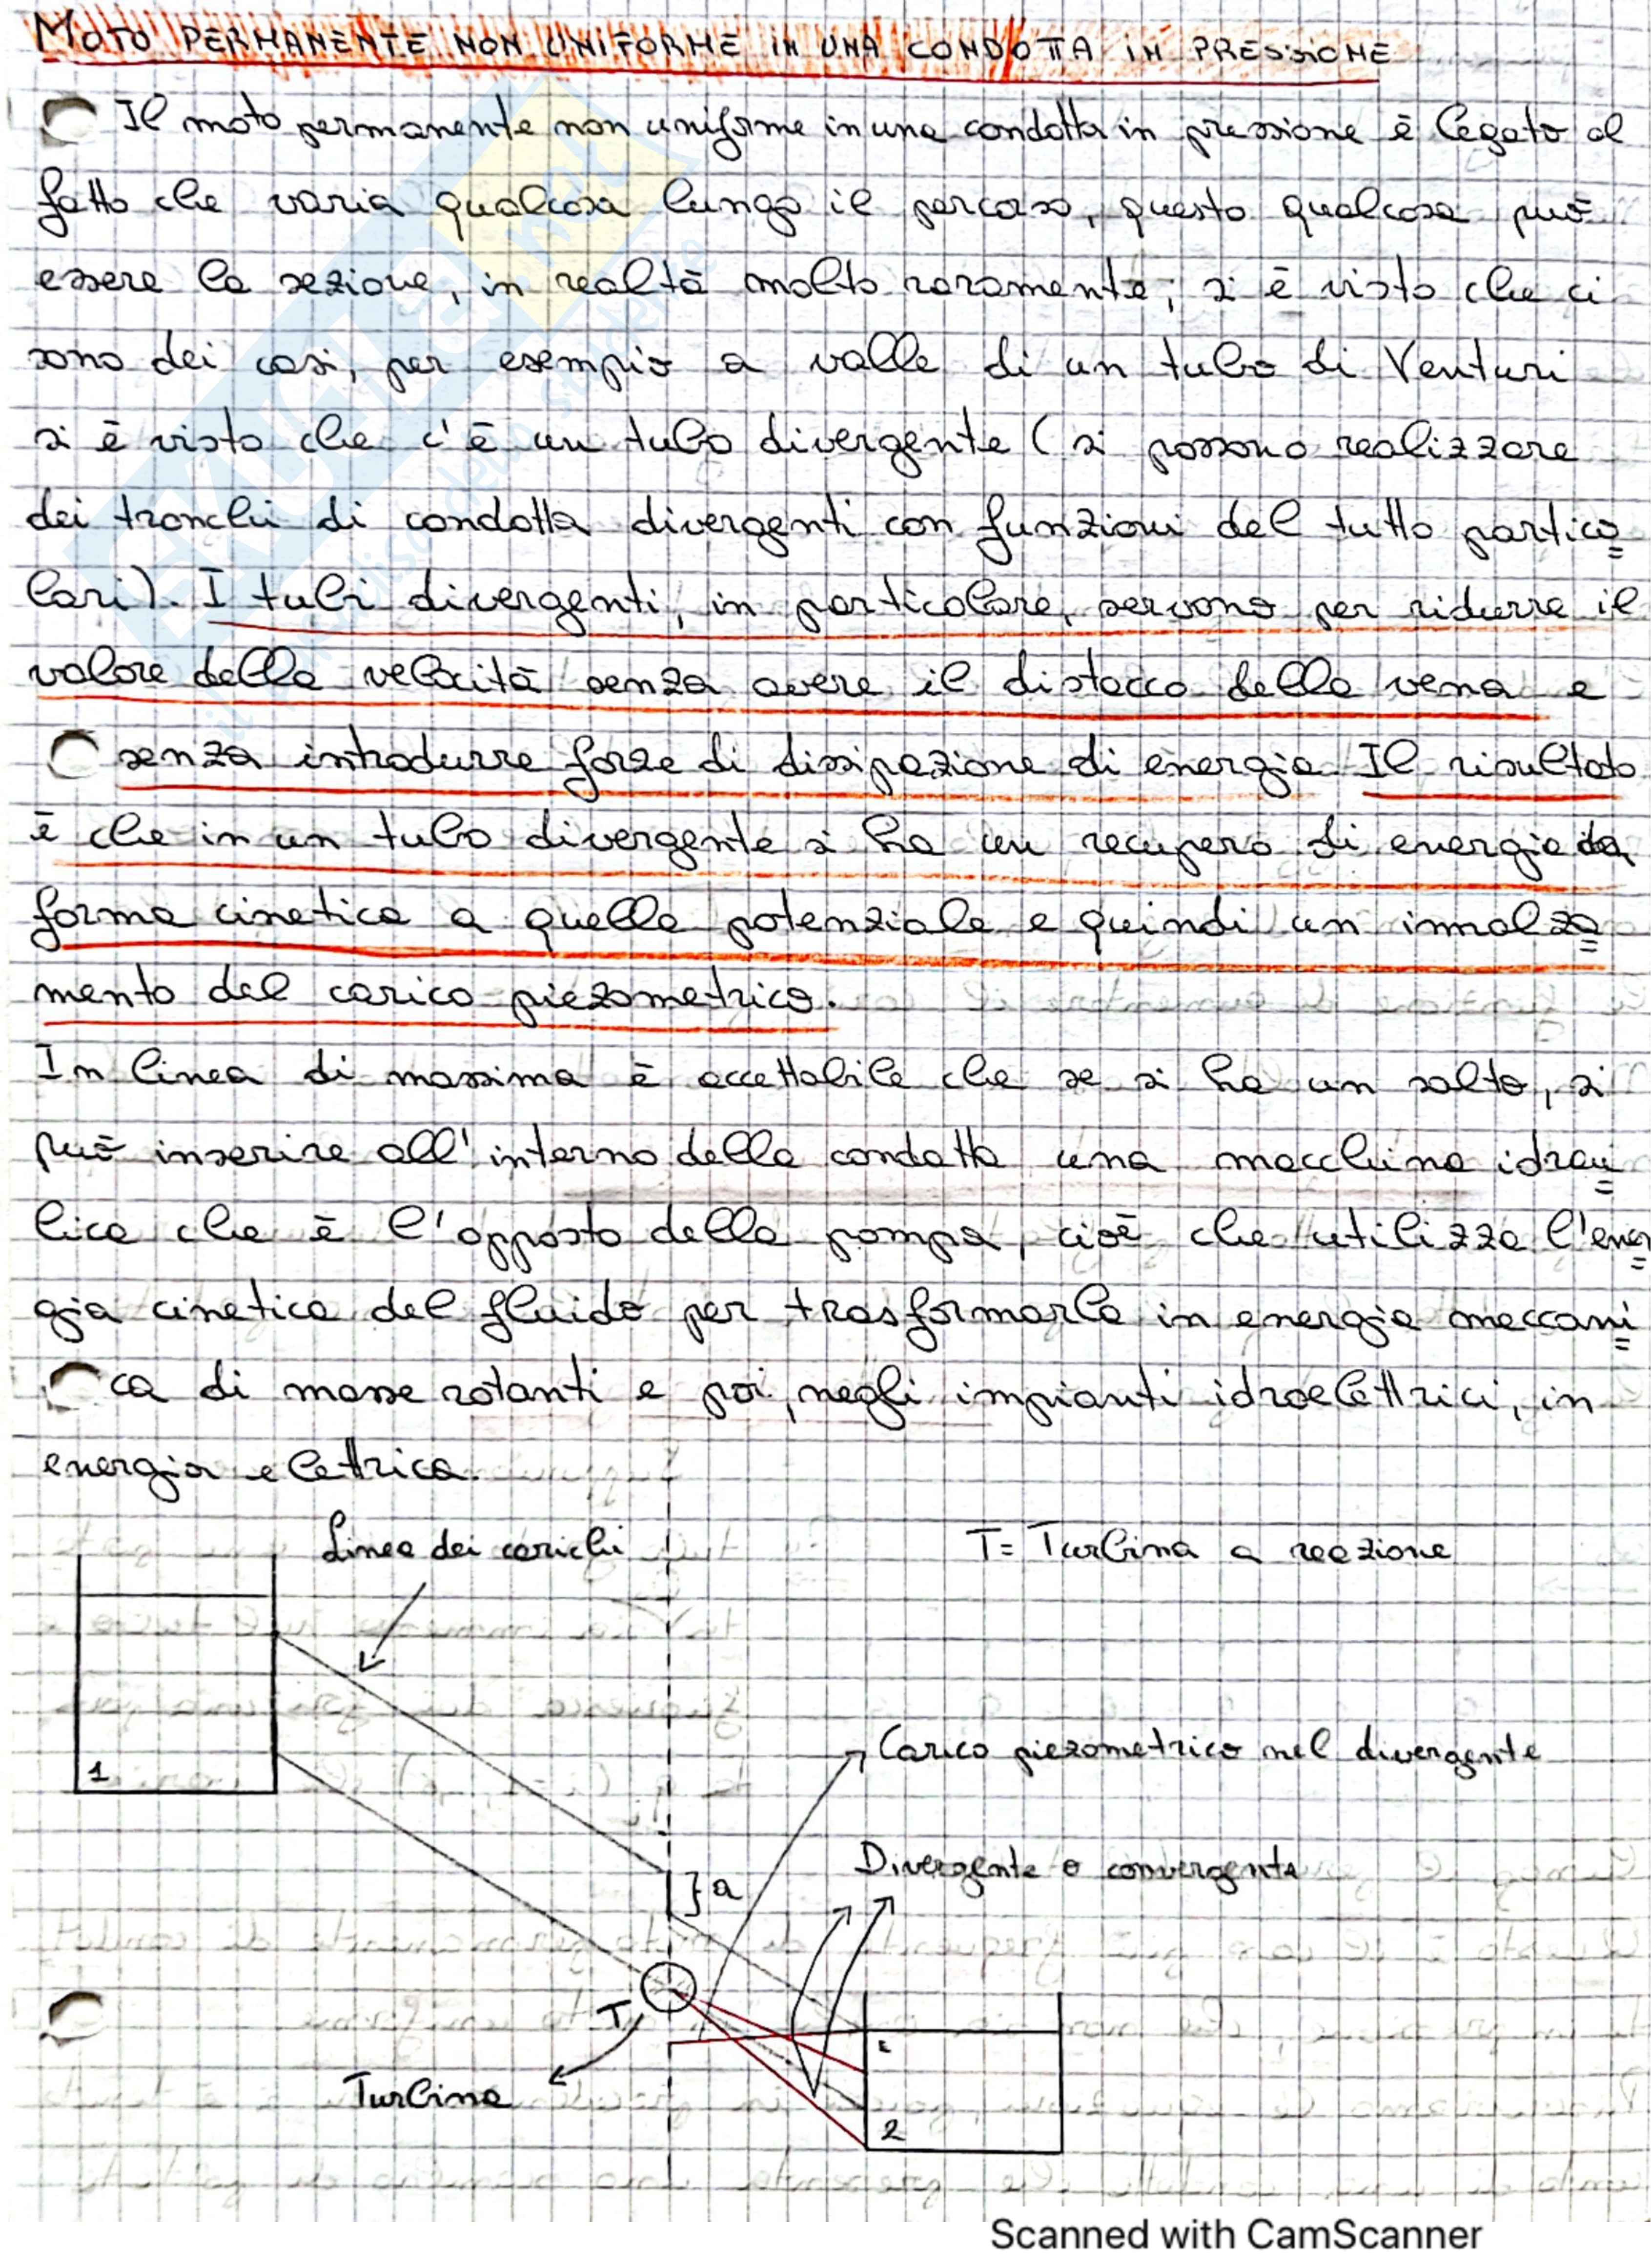 MOTO PERMANENTE NON UNIFORME IN UNA CONDOTTA IN PRESSIONE
Il moto permanente non uniforme in una condotta in pressione è legato al
fatto che varia qualcosa lungo il percorso, questo qualcosa può
essere la sezione, in realtà molto raramente; si è visto che ci
sono dei casi, per esempio a valle di un tubo di Venturi
si è visto che c'è un tubo divergente (si possono realizzare
dei tronchi di condotta divergenti con funzioni del tutto partico
lari). I tubi divergenti, in particolare, servono per ridurre il
valore della velocità senza avere il distacco della vena e
senza introdurre forze di dissipazione di energia. Il risultato
è che in un tubo divergente si ha un recupero di energia da
forma cinetica a quella potenziale e quindi un innalza
mento del carico piezometrico.
In linea di massima è accettabile che se si ha un salto, si
può inserire all'interno della condotta una macchina idrau
lica che è l'opposto della pompa, cioè che utilizza l'ener
gia cinetica del fluido per trasformarla in energia meccani
ca di masse rotanti e poi, negli impianti idroelettrici, in
energia elettrica.
Linea dei carichi
T= Turbina a reazione
1
Carico piezometrico nel divergente
Divergente o convergente
}a
T
Turbina
2
Scanned with CamScanner